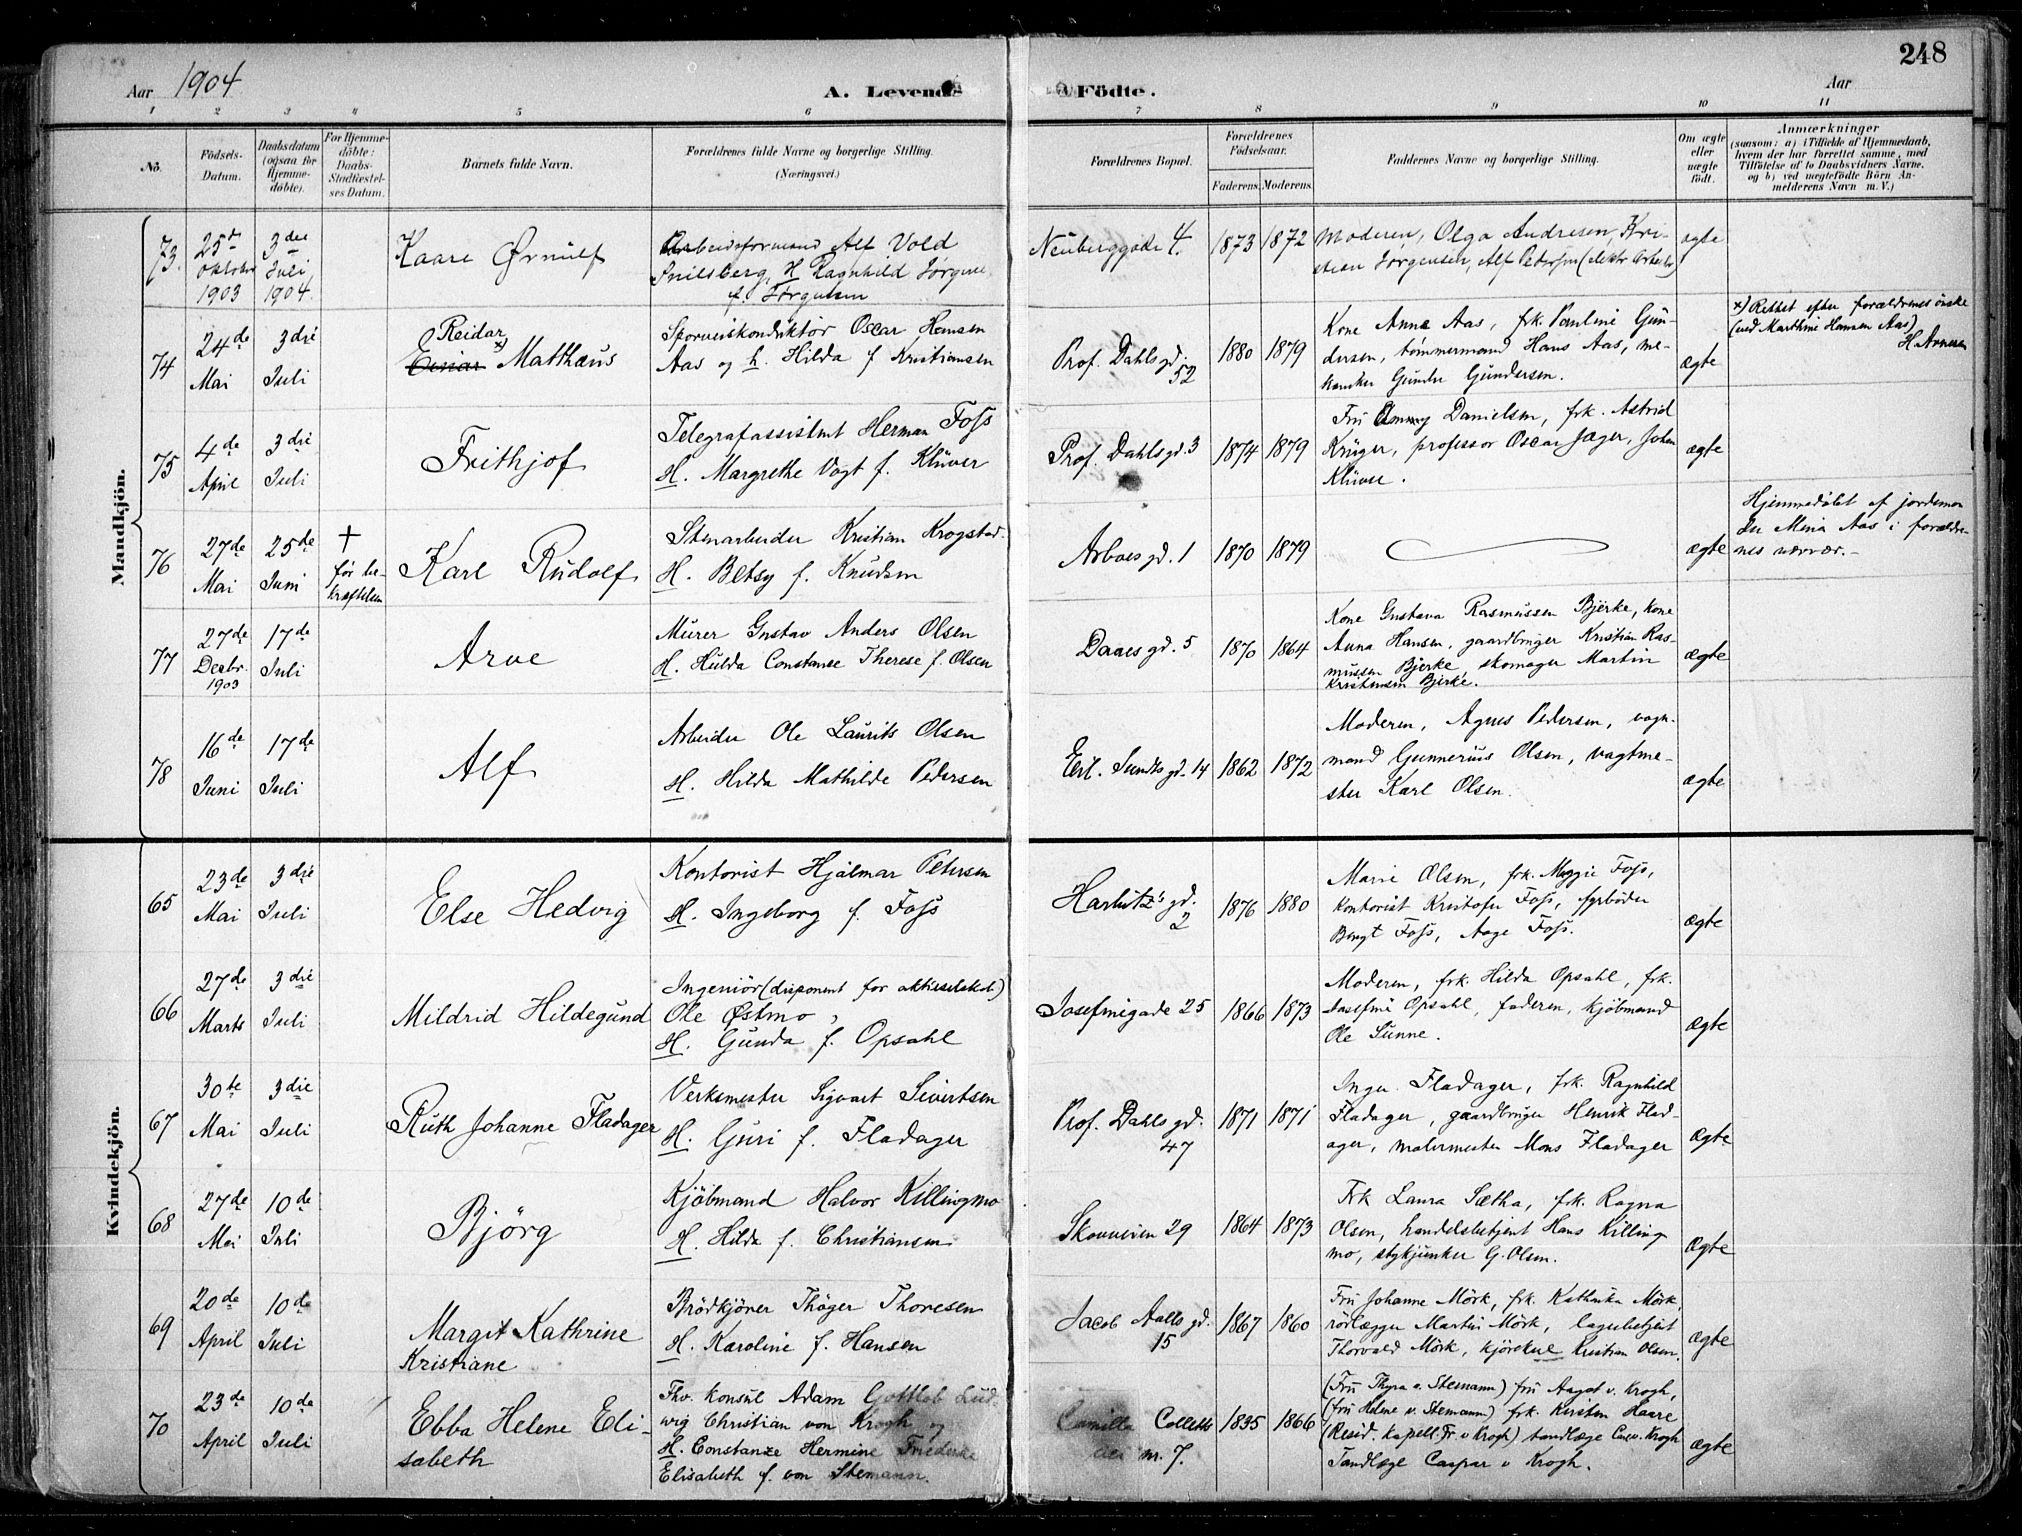 248
Aar 1904
A. Levende Födte.
Aar
1 2 3 4 5 6 7 8 9 10 11
No.
Födsels-Datum.
Daabsdatum (ogsaa for Hjemme-döbte).
For Hjemme-döbte: Daabs-Stadfæstel-ses Datum.
Barnets fulde Navn.
Forældrenes fulde Navne og borgerlige Stilling.
(Næringsvei.)
Forældrenes Bopæl.
Forældrenes Födselsaar.
Faderens. Moderens.
Faddernes Navne og borgerlige Stilling.
Om ægte eller uægte födt.
Anmærkninger
(saasom: a) i Tilfælde af Hjemmedaab,
hvem der har forrettet samme, med
Tilföielse af to Daabsvidners Navne.
og b) ved uægtefödte Börn An-
melderens Navn m. V.)
Mandkjön.
73.
25de
Oktober
1903
3die
Juli
1904.
Kaare Ørnulf
Arbeidsformand Alf Vold
Snilsberg, H Ragnhild Jørgine
f. Jørgensen
Neuberggade 4.
1873
1872
Moderen, Olga Andresen, Kri-
stian Jørgensen, Alf Pedersen (elektr. Arbeider)
ægte
74
24de
Mai
3die
Juli
Reidar x)
Einar Matthæus
Sporveiskonduktør Oscar Hansen
Aas og h. Hilda f Kristiansen
Prof. Dahls gd.
52
1880
1879
Kone Anna Aas, frk. Pauline Gun-
dersen, tømmermand Hans Aas, me-
kaniker Gunder Gundersen.
ægte
x) Rettet efter forældrenes ønske
(ved Marthine Hansen Aas)
75
4de
April
3die
Juli
Frithjof
Telegrafassistent Herman Foss
H. Margrethe Vogt f. Klüver
Prof. Dahls gd. 3
1874
1879
Fru Danielsen, frk. Astrid
Krüger, professor Oscar Jæger, Johan
Klüver.
ægte
76
27de
Mai
25de
Juni
+
før be-
kræftelsen
Karl Rudolf
Stenarbeider Kristian Krogstad.
H. Betsy f. Knudsen
Arboes gd. 1
1870
1879
ægte
Hjemmedøbt af jordemo
der Mina Aas i forældre-
nes nærvær.-
77
27de
Decbr.
1903
17de
Juli
Arve
Murer Gustav Anders Olsen
H. Hulda Constanse Therese f. Olsen
Daaes gd. 5
1870
1864
Kone Gustava Rasmussen Bjerke, kone
Anna Hansen, gaardbruger Kristian Ras-
mussen Bjerke, skomager Martin
Kristensen Bjerke.
ægte
78
16de
Juni
17de
Juli
Alf
Arbeider Ole Laurits Olsen
H. Hilda Mathilde Pedersen
Eil. Sundts gd. 14
1862
1872
Moderen, Agnes Pedersen, vogn-
mand Gunnerius Olsen, vagtme-
ster Karl Olsen.
ægte
Kvindekjön.
65
23de
Mai
3die
Juli
Else Hedvig
Kontorist Hjalmar Petersen
H. Ingeborg f. Foss
gd.
2
1876
1880
Marie Olsen, frk. Maggie Foss,
kontorist Kristofer Foss, fyrbøder
Bengt Foss, Aage Foss.
ægte
66
27de
Marts
3die
Juli
Mildrid Hildegund
Ingeniör (disponent for aktieselskab)
Ole Østmo,
H. Gunda f. Opsahl
Josefinegade 25
1866
1873
Moderen, frk. Hilda Opsahl, frk.
Josefine Opsahl, faderen, kjöbmand
Ole Sunne.
ægte
67
30te
Mai
3die
Juli
Ruth Johanne Fladager
Verksmester Sigvart Sivertsen
H. Guri f. Fladager
Prof. Dahls gd.
47
1871
1871
Inger Fladager, frk. Ragnhild
Fladager, gaardbruger Henrik Flad-
ager, malermester Mons Fladager
ægte
68
27de
Mai
10de
Juli
Bjørg
Kjöbmand Halvor Killingmo
H. Hilda f. Christiansen
Skovveien 29
1864
1873
Frk Laura Sætha, frk. Ragna
Olsen, handelsbetjent Hans Killing
mo, stykjunker G. Olsen.
ægte
69
20de
April
10de
Juli
Margit Kathrine
Kristiane
Brödkjörer Thöger Thoresen
H. Karoline f. Hansen
Jacob Aalls gd.
15
1867
1860
Fru Johanne Mörk, frk. Kathrika Mörk,
rörlægger Martin Mörk, lagerbetjent
Thorvald Mörk, kjørekarl Kristian Olsen.
ægte
70
23de
April
10de
Juli
Ebba Helene Eli-
sabeth
Fhv. konsul Adam Gottlob Lud-
wig Christian von Krogh og
H. Constanze Hermine Friderike
Elisabeth f. von Stemann.
Camilla Colletts
vei nr. 7.
1835
1866
(Fru Thyra v. Stemann) fru Aagot v. Krogh,
(fru Helene v. Stemann) frk. Kirsten Haare
(Resid. kapell. Fr. v Krogh) tandlæge Casp. v. Krogh
Tandlæge Caspar v Krogh.
ægte